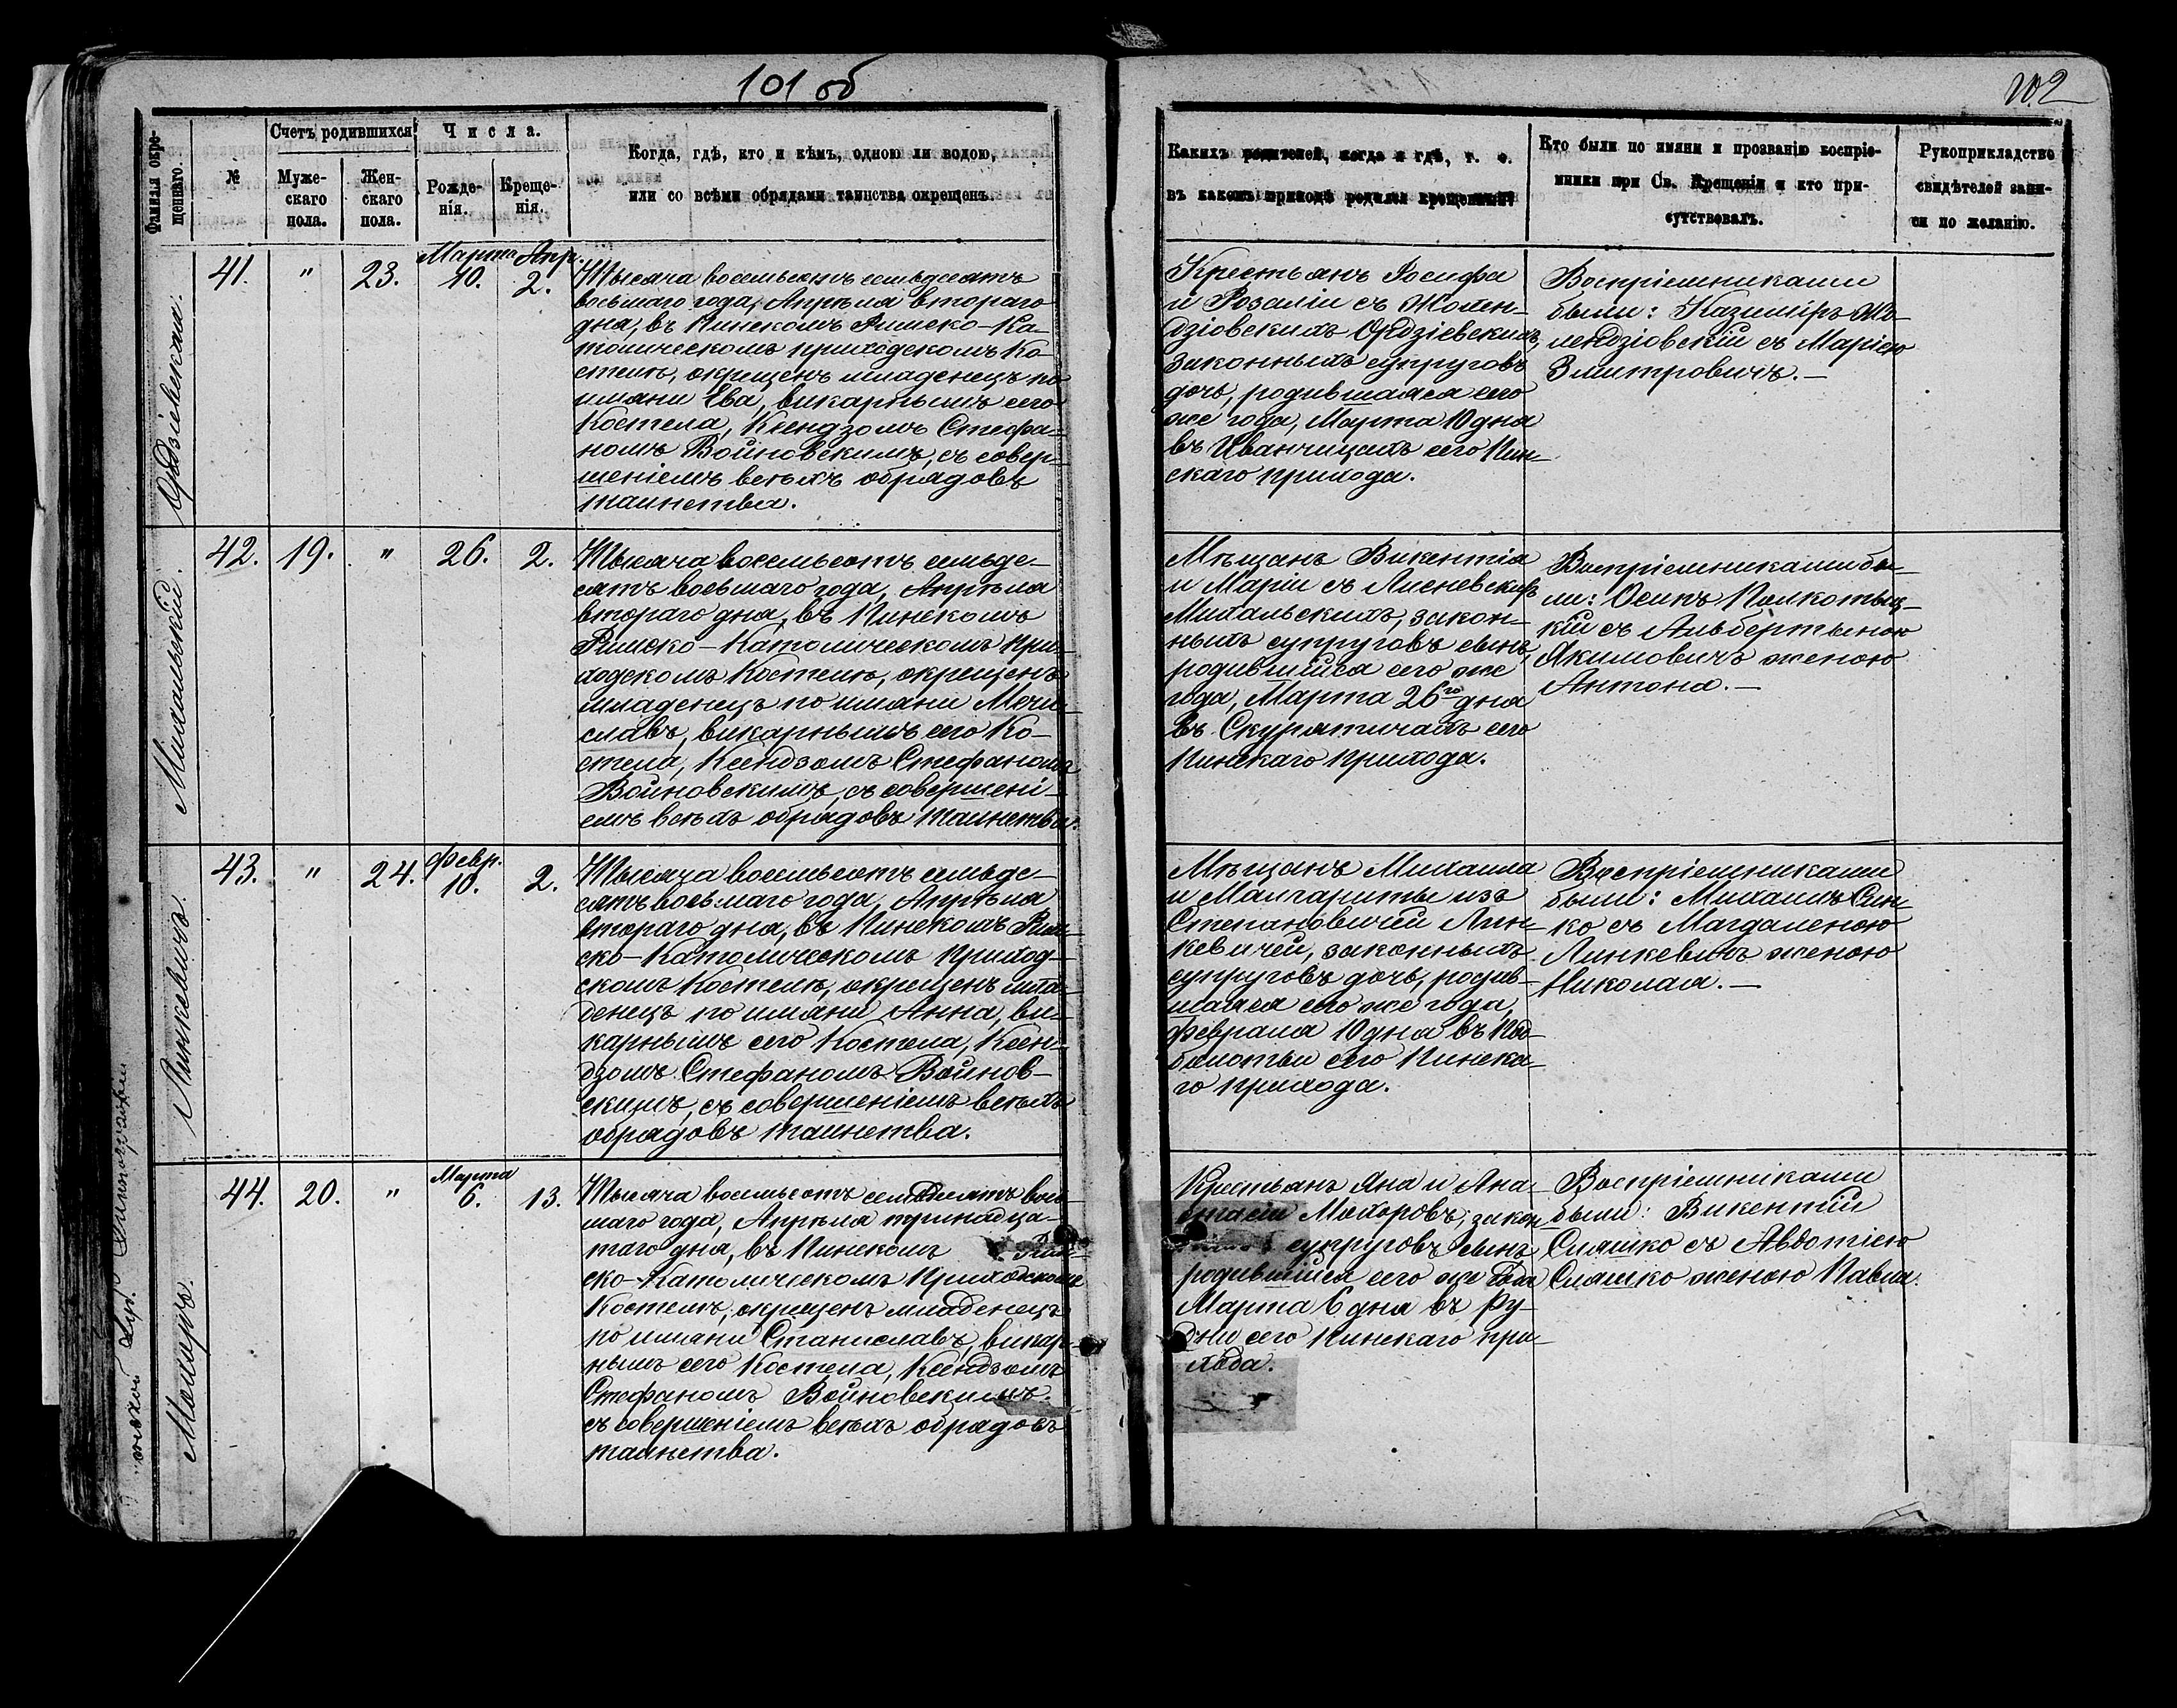 101 об
102
Фамилія окре-
щеннаго.
№
Счетъ родившихся
Муже-
скаго
пола.
Жен-
скаго
пола.
Числа.
Рожде-
нія.
Креще-
нія.
Когда, гдѣ, кто и кѣмъ, одною ли водою,
или со всѣми обрядами таинства окрещенъ.
Какихъ родителей, когда и гдѣ, т. е.
въ какомъ приходѣ родился крещенный?
Кто были по имяни и прозванію воспріе-
мники при Св. Крещеніи и кто при-
сутствовалъ.
Рукоприкладство
свидѣтелей запи-
си по желанію.
41.
"
23.
Марта
10.
Апр.
2.
Тысяча восемьсотъ семьдесятъ
восьмаго года, Апрѣля втораго
дня, въ Пинскомъ Римско-Ка-
толическомъ приходскомъ Ко-
стелѣ, окрещенъ младенецъ по
имяни Ева, викарнымъ сего
Костела, Ксендзомъ Стефа-
номъ Войновскимъ, съ совер-
шеніемъ всѣхъ обрядовъ
таинства.
Крестьянъ Іосифа
и Розаліи съ Жолен-
дзіовскихъ Ордзіевскихъ,
законныхъ супруговъ
дочь, родившаяся сего
же года, Марта 10 дня
въ Иванчицахъ сего Пин-
скаго прихода.
Воспріемниками
были: Казиміръ Жо-
лендзіовскій съ Маріею
Змитровичъ.—
Михальскій.
42.
19.
"
26.
2.
Тысяча восемьсотъ семьде-
сятъ восьмаго года, Апрѣля
втораго дня, въ Пинскомъ
Римско-Католическомъ при-
ходскомъ Костелѣ, окрещенъ
младенецъ по имяни Мечи-
славъ, викарнымъ сего Ко-
стела, Ксендзомъ Стефаномъ
Войновскимъ, съ совершені-
емъ всѣхъ обрядовъ таинства.
Мѣщанъ Викентія
и Маріи съ Лисневскихъ
Михальскихъ, закон-
ныхъ супруговъ сынъ,
родившійся сего же
года, Марта 26го дня
въ Скурятичахъ сего
Пинскаго прихода.
Воспріемниками бы-
ли: Осипъ Полкотыц-
кій съ Альбертыною
Якимовичъ женою
Антона.—
Линкевичъ.
43.
"
24.
Февр.
10.
2.
Тысяча восемьсотъ семьде-
сятъ восьмаго года, Апрѣля
втораго дня, въ Пинскомъ Рим-
ско-Католическомъ приход-
скомъ Костелѣ, окрещенъ мла-
денецъ по имяни Анна, ви-
карнымъ сего Костела, Ксен-
дзомъ Стефаномъ Войнов-
скимъ, съ совершеніемъ всѣхъ
обрядовъ таинства.
Мѣщанъ Михаила
и Малгариты изъ
Степановичей Лин-
кевичей, законныхъ
супруговъ дочь, родив-
шаяся сего же года,
Февраля 10 дня въ Под-
болотьи сего Пинска-
го прихода.
Воспріемниками
были: Михаилъ Син-
ко съ Магдаленою
Линкевичъ женою
Николая.—
Мохоръ.
44.
20.
"
Марта
6.
13.
Тысяча восемьсотъ семьдесятъ вось-
маго года, Апрѣля тринадца-
таго дня, въ Пинскомъ Рим-
ско-Католическомъ Приходскомъ
Костелѣ, окрещенъ младенецъ
по имяни Станиславъ, викар-
нымъ сего Костела, Ксендзомъ
Стефаномъ Войновскимъ.
съ совершеніемъ всѣхъ обрядовъ
таинства.
Крестьянъ Яна и Ана-
стасіи Мохоровъ, закон-
супруговъ сынъ
родившійся сего же года
Марта 6 дня въ Ру-
дни сего Пинскаго при-
хода.
Воспріемниками
были: Викентій
Сляшко съ Авдотіею
Сляшко женою Павла.